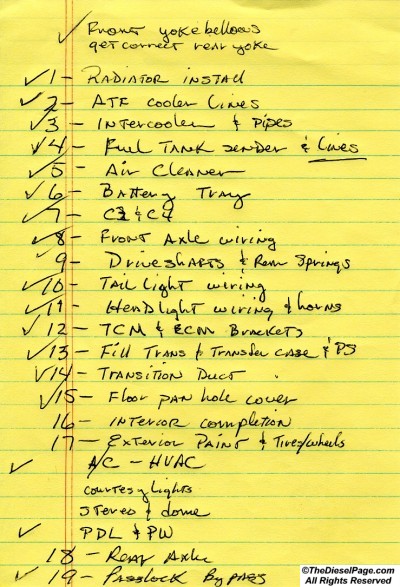 ✓ Front yoke bellows
get correct rear yoke
✓ 1 - Radiator install
✓ 2 - ATF cooler lines
✓ 3 - Intercooler & Pipes
✓ 4 - Fuel Tank sender & Lines
✓ 5 - Air Cleaner
✓ 6 - Battery Tray
✓ 7 - C3 & C4
✓ 8 - Front Axle wiring
✓ 9 - Driveshafts & Rear Springs
✓ 10 - Tail light wiring
✓ 11 - Headlight wiring & horns
✓ 12 - TCM & ECM Brackets
✓ 13 - Fill Trans & Transfer case & PS
✓ 14 - Transition Duct
✓ 15 - Floor pan hole cover
16 - Interior completion
17 - Exterior Paint & Tires/wheels
✓ A/C - HVAC
courtesy lights
stereo & dome
✓ PDL & PW
18 - Rear Axle
✓ 19 - Passlock Bypass
©TheDieselPage.com
All Rights Reserved